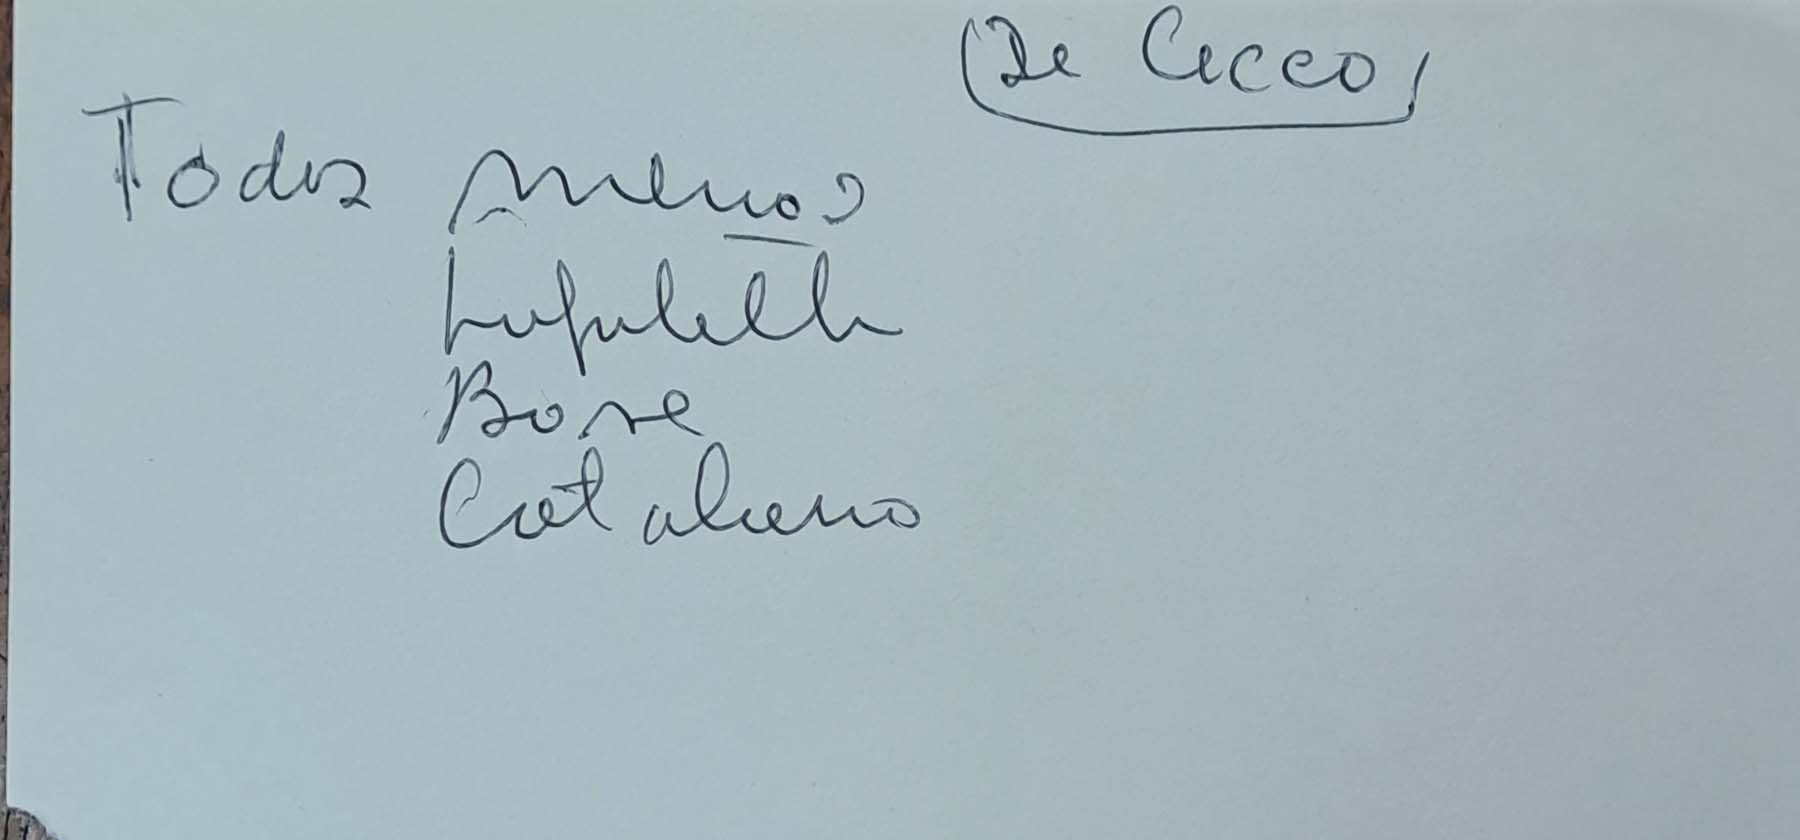 De Cicco
Todos menos
Bore
Catalano